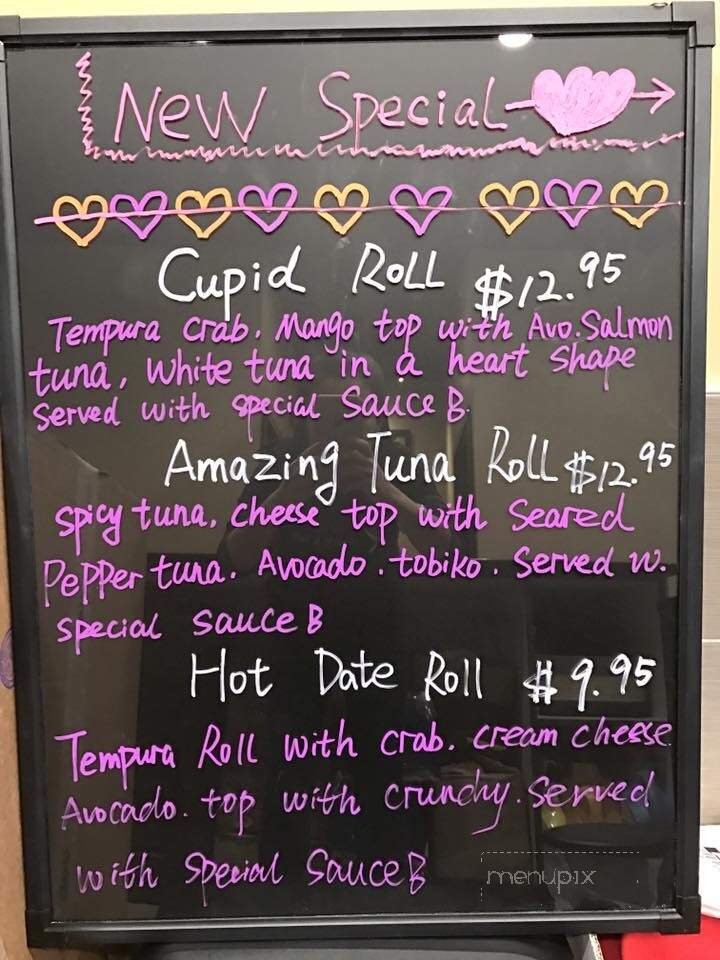 New Special
Cupid Roll $12.95
Tempura crab. Mango top with Avo. Salmon
tuna, white tuna in a heart shape
Served with special Sauce B.
Amazing Tuna Roll $12.95
Spicy tuna, cheese top with Seared
Pepper tuna. Avocado. tobiko. Served w.
special sauce B
Hot Date Roll $9.95
Tempura Roll with crab. cream cheese
Avocado. top with crunchy. Served
with special sauce B
menupix